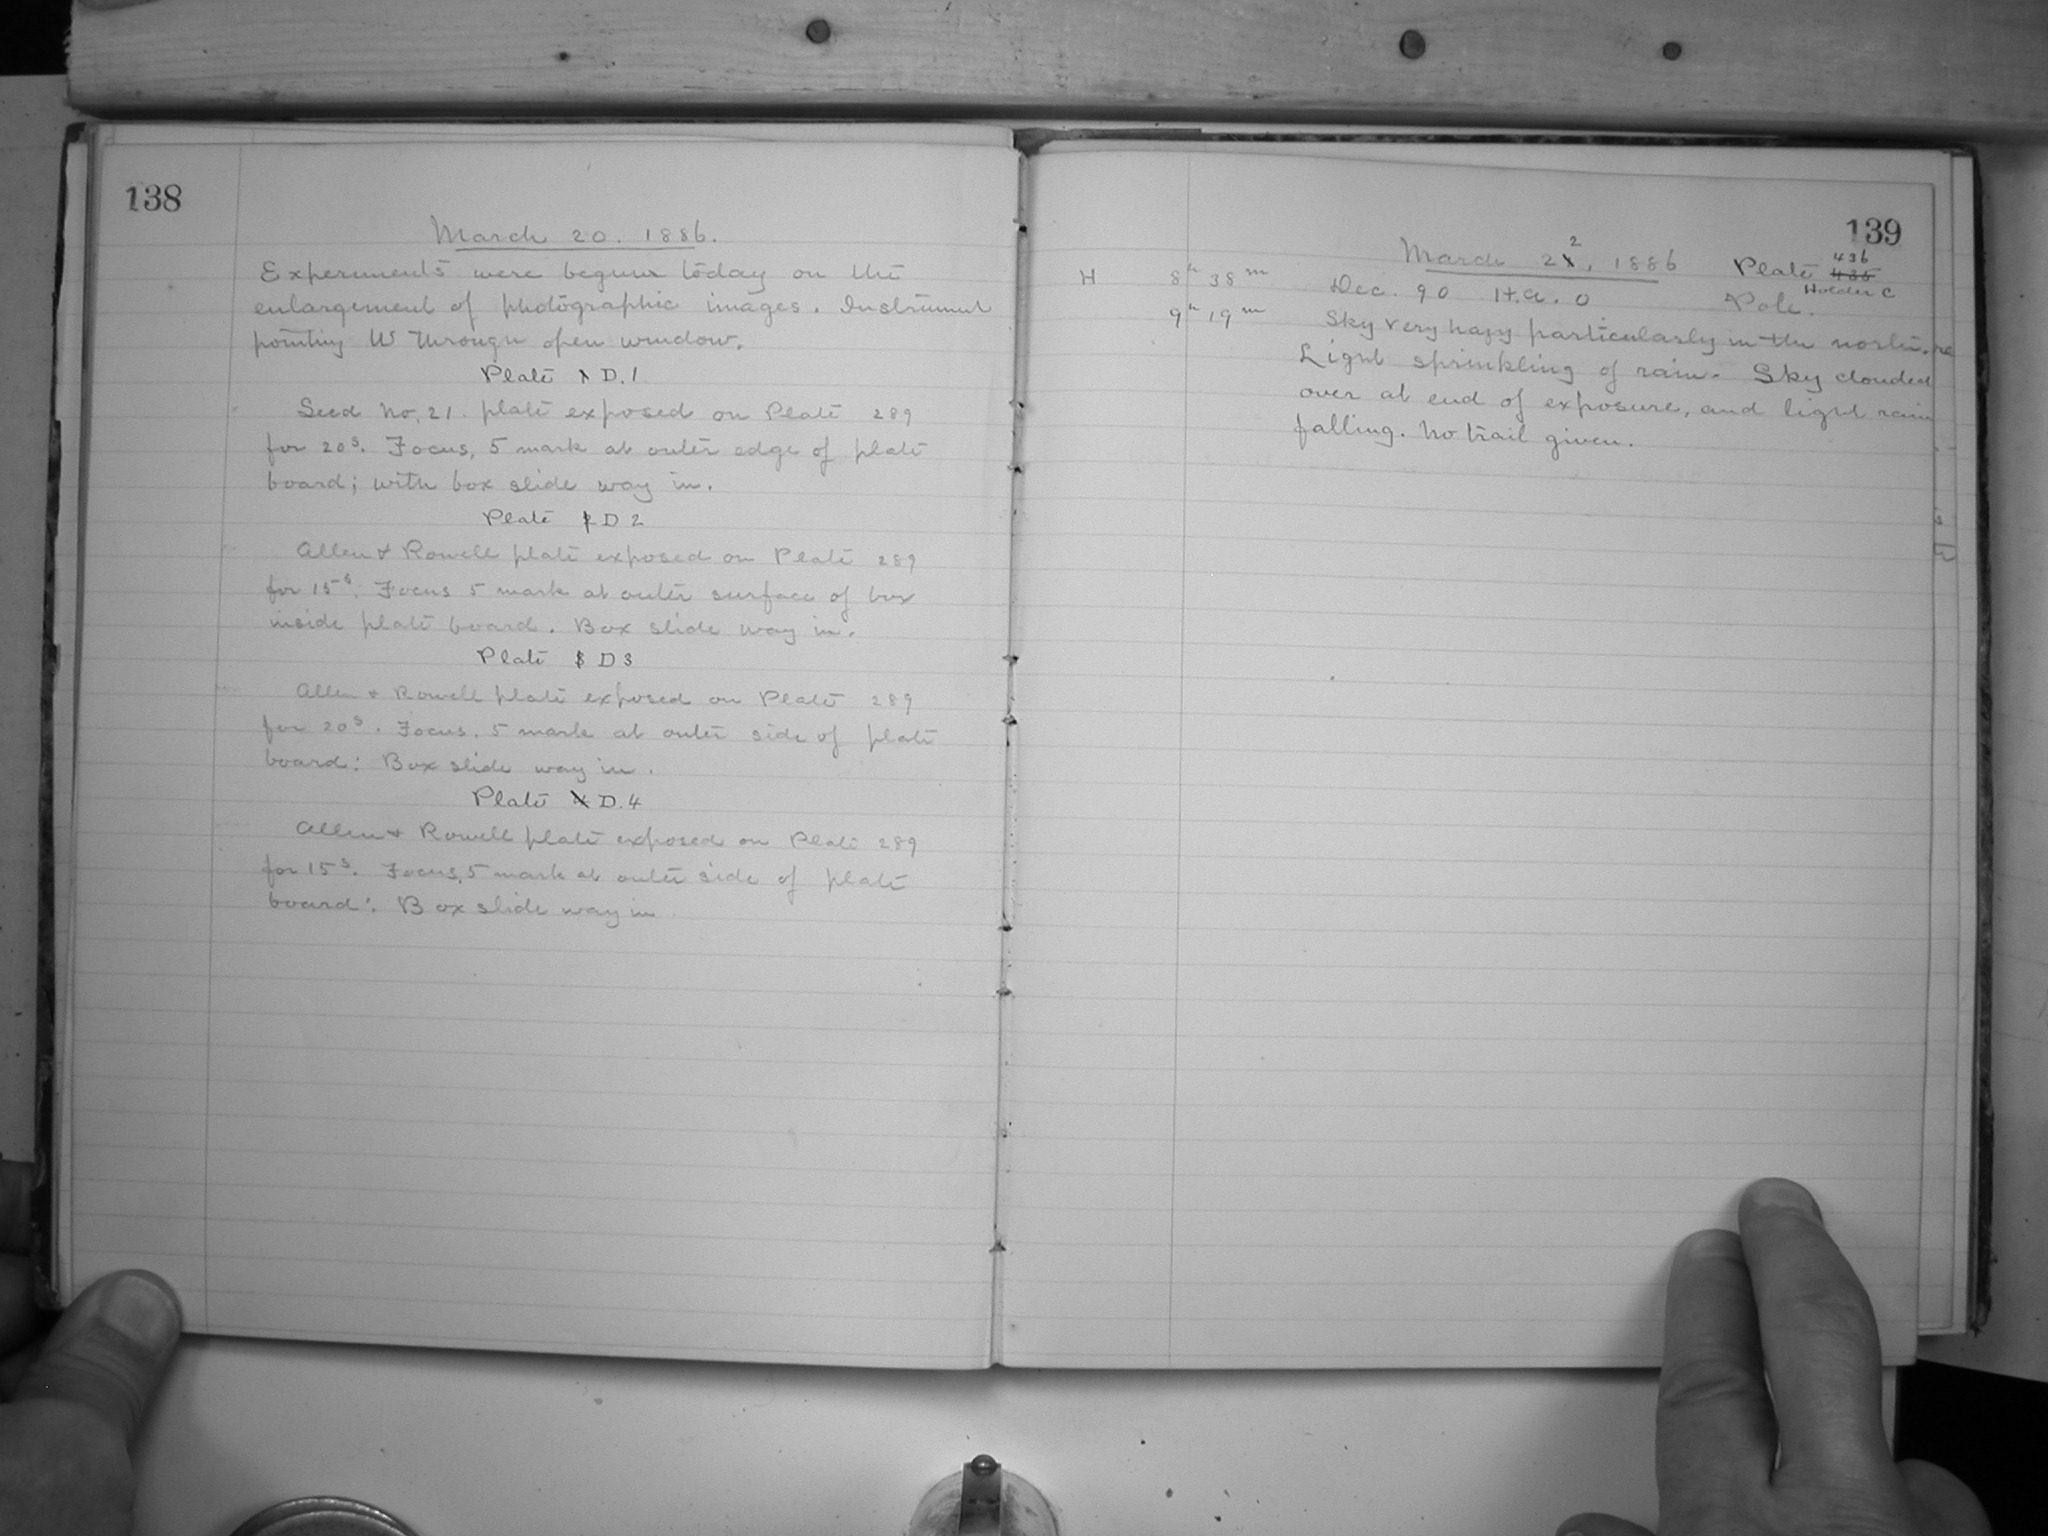 138
March 20. 1886.
Experiments were begun today on the
enlargement of photographic images. Instrument
pointing W through open window.
Plate D.1
Seed No. 21. plate exposed on Plate 289
for 20s. Focus, 5 mark at outer edge of plate
board; with box slide way in.
Plate D 2
Allen & Rowell plate exposed on Plate 289
for 15s. Focus 5 mark at outer surface of box
inside plate board. Box slide way in.
Plate D 3
Allen & Rowell plate exposed on Plate 289
for 20s. Focus. 5 mark at outer side of plate
board: Box slide way in.
Plate D.4
Allen & Rowell plate exposed on Plate 289
for 15s. Focus, 5 mark at outer side of plate
board: Box slide way in
139
March 22, 1886 Plate 436
Holder C
H 8h 38m Dec. 90 H.a. 0 Pole.
9h 19m Sky very hazy particularly in the north.
Light sprinkling of rain. Sky clouded
over at end of exposure, and light rain
falling. No trail given.